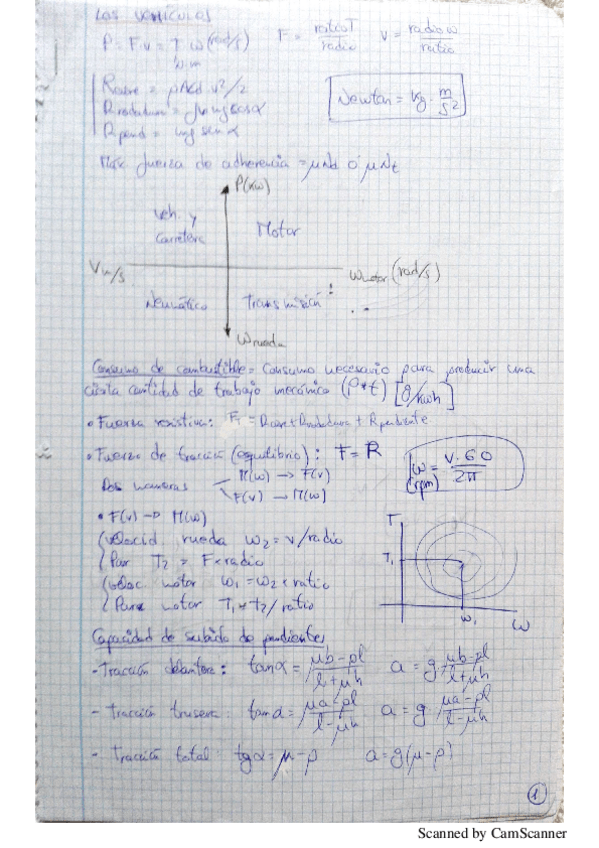 LOS VEHÍCULOS
P = F·v = T·ω (rad/s) F = ratio·T / radio V = radio·ω / ratio
N·m
Raero = ρACd v²/2
Rrodadura = μ mg cosα
Rpend = mg senα
Newton = kg · m/s²
Max fuerza de adherencia = μNd ó μNt
P(kw)
Veh. y carretera
Motor
V m/s
ωmotor (rad/s)
Neumático
Transmisión
ωrueda
Consumo de combustible = Consumo necesario para producir una
cierta cantidad de trabajo mecánico (P*t) [g/kwh]
• Fuerza resistiva: Fr = Raero + Rrodadura + Rpendiente
• Fuerza de tracción (equilibrio): F = R
Dos maneras
M(ω) → F(v)
F(v) → M(ω)
ω (rpm) = v·60 / 2π
• F(v) → M(ω)
velocid rueda ω2 = v/radio
Par T2 = F×radio
veloc motor ω1 = ω2 × ratio
Par motor T1 = T2/ratio
T
T1
ω1
ω
Capacidad de subida de pendientes
- Tracción delantera: tanα = μb-ρl / l+μh a = g μb-ρl / l+μh
- Tracción trasera: tanα = μa-ρl / l-μh a = g μa-ρl / l-μh
- Tracción total: tgα = μ-ρ a = g(μ-ρ)
1
Scanned by CamScanner